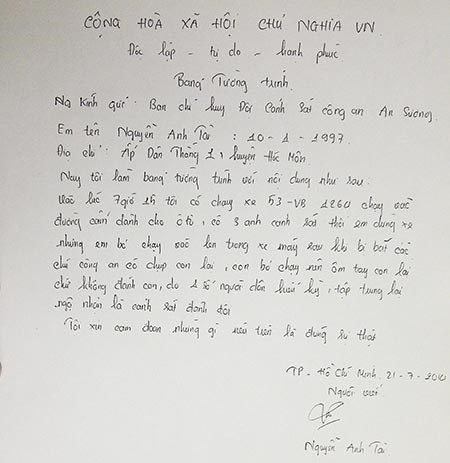 CỘNG HOÀ XÃ HỘI CHỦ NGHĨA VN
Độc lập - tự do - hạnh phúc
Bảng Tường trình
Kính gửi: Ban chỉ huy Đội Cảnh sát công an An Sương
Em tên Nguyễn Anh Tài : 10 - 1 - 1997
Địa chỉ: Ấp Dân Thắng 1, huyện Hóc Môn
Nay tôi làm bảng tường trình với nội dung như sau:
vào lúc 7giờ 15 tôi có chạy xe 53-VB 1264 chạy vào
đường cấm dành cho ô tô, có 3 anh cảnh sát thổi em dừng xe
nhưng em bỏ chạy vào len trong xe máy sau khi bị bắt các
chú công an có chụp con lại, con bỏ chạy nên ôm tay con lại
chứ không đánh con, do 1 số người dân hiếu kỳ, tập trung lại
ngộ nhận là cảnh sát đánh tôi
Tôi xin cam đoan những gì nêu trên là đúng sự thật
TP - Hồ Chí Minh. 21 - 7 - 2014
Người viết
Nguyễn Anh Tài